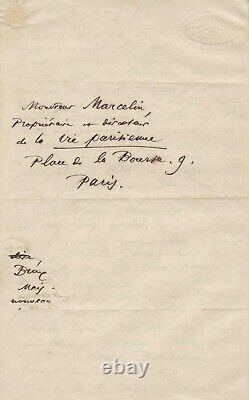 Monsieur Marcelin
Propriétaire et directeur
de la Vie parisienne
Place de la Bourse. 9.
Paris.
Deux
Mois
nouveau